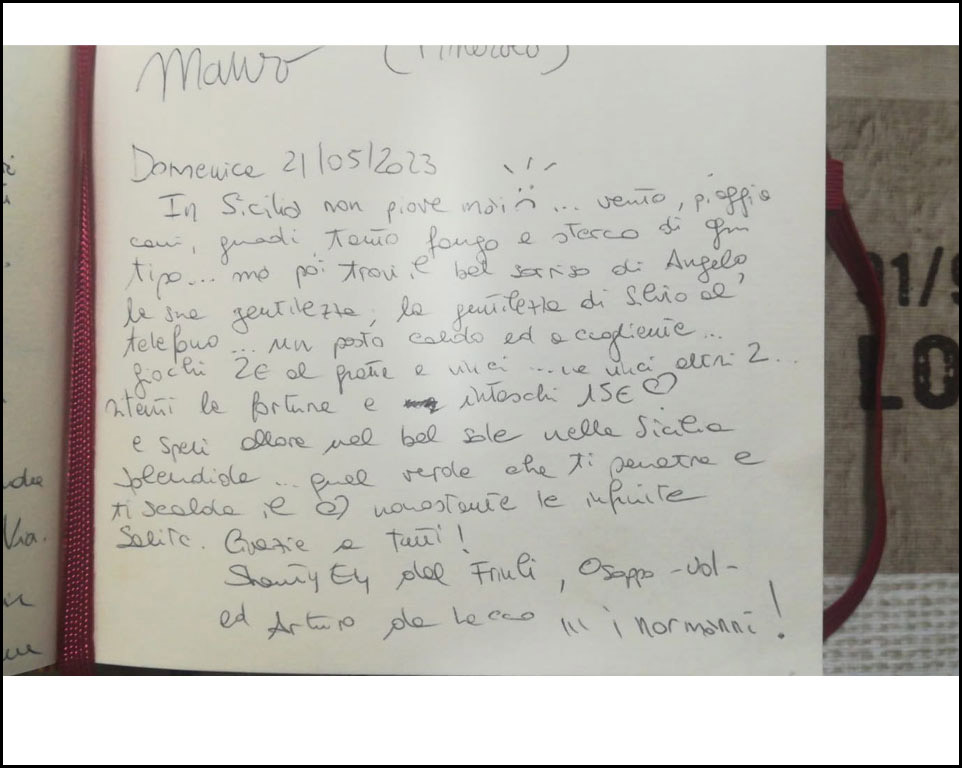 Mauro
Domenica 21/05/2023
In Sicilia non piove mai... vento, pioggia
cani, guadi, tanto fango e sterco di ogni
tipo... ma poi trovi il bel sorriso di Angelo,
la sua gentilezza, la gentilezza di Silvio al
telefono... un posto caldo ed accogliente...
giochi 2€ al gratta e vinci... ne vinci altri 2...
ritenti la fortuna e intaschi 15€ ♡
e speri allora nel bel sole nella Sicilia
splendida... quel verde che ti penetra e
ti scalda il ♡ nonostante le infinite
salite. Grazie a tutti!
dal Friuli, Osoppo -Ud-
ed Arturo da Lecco ... i normanni!
01/9
LO
Via.